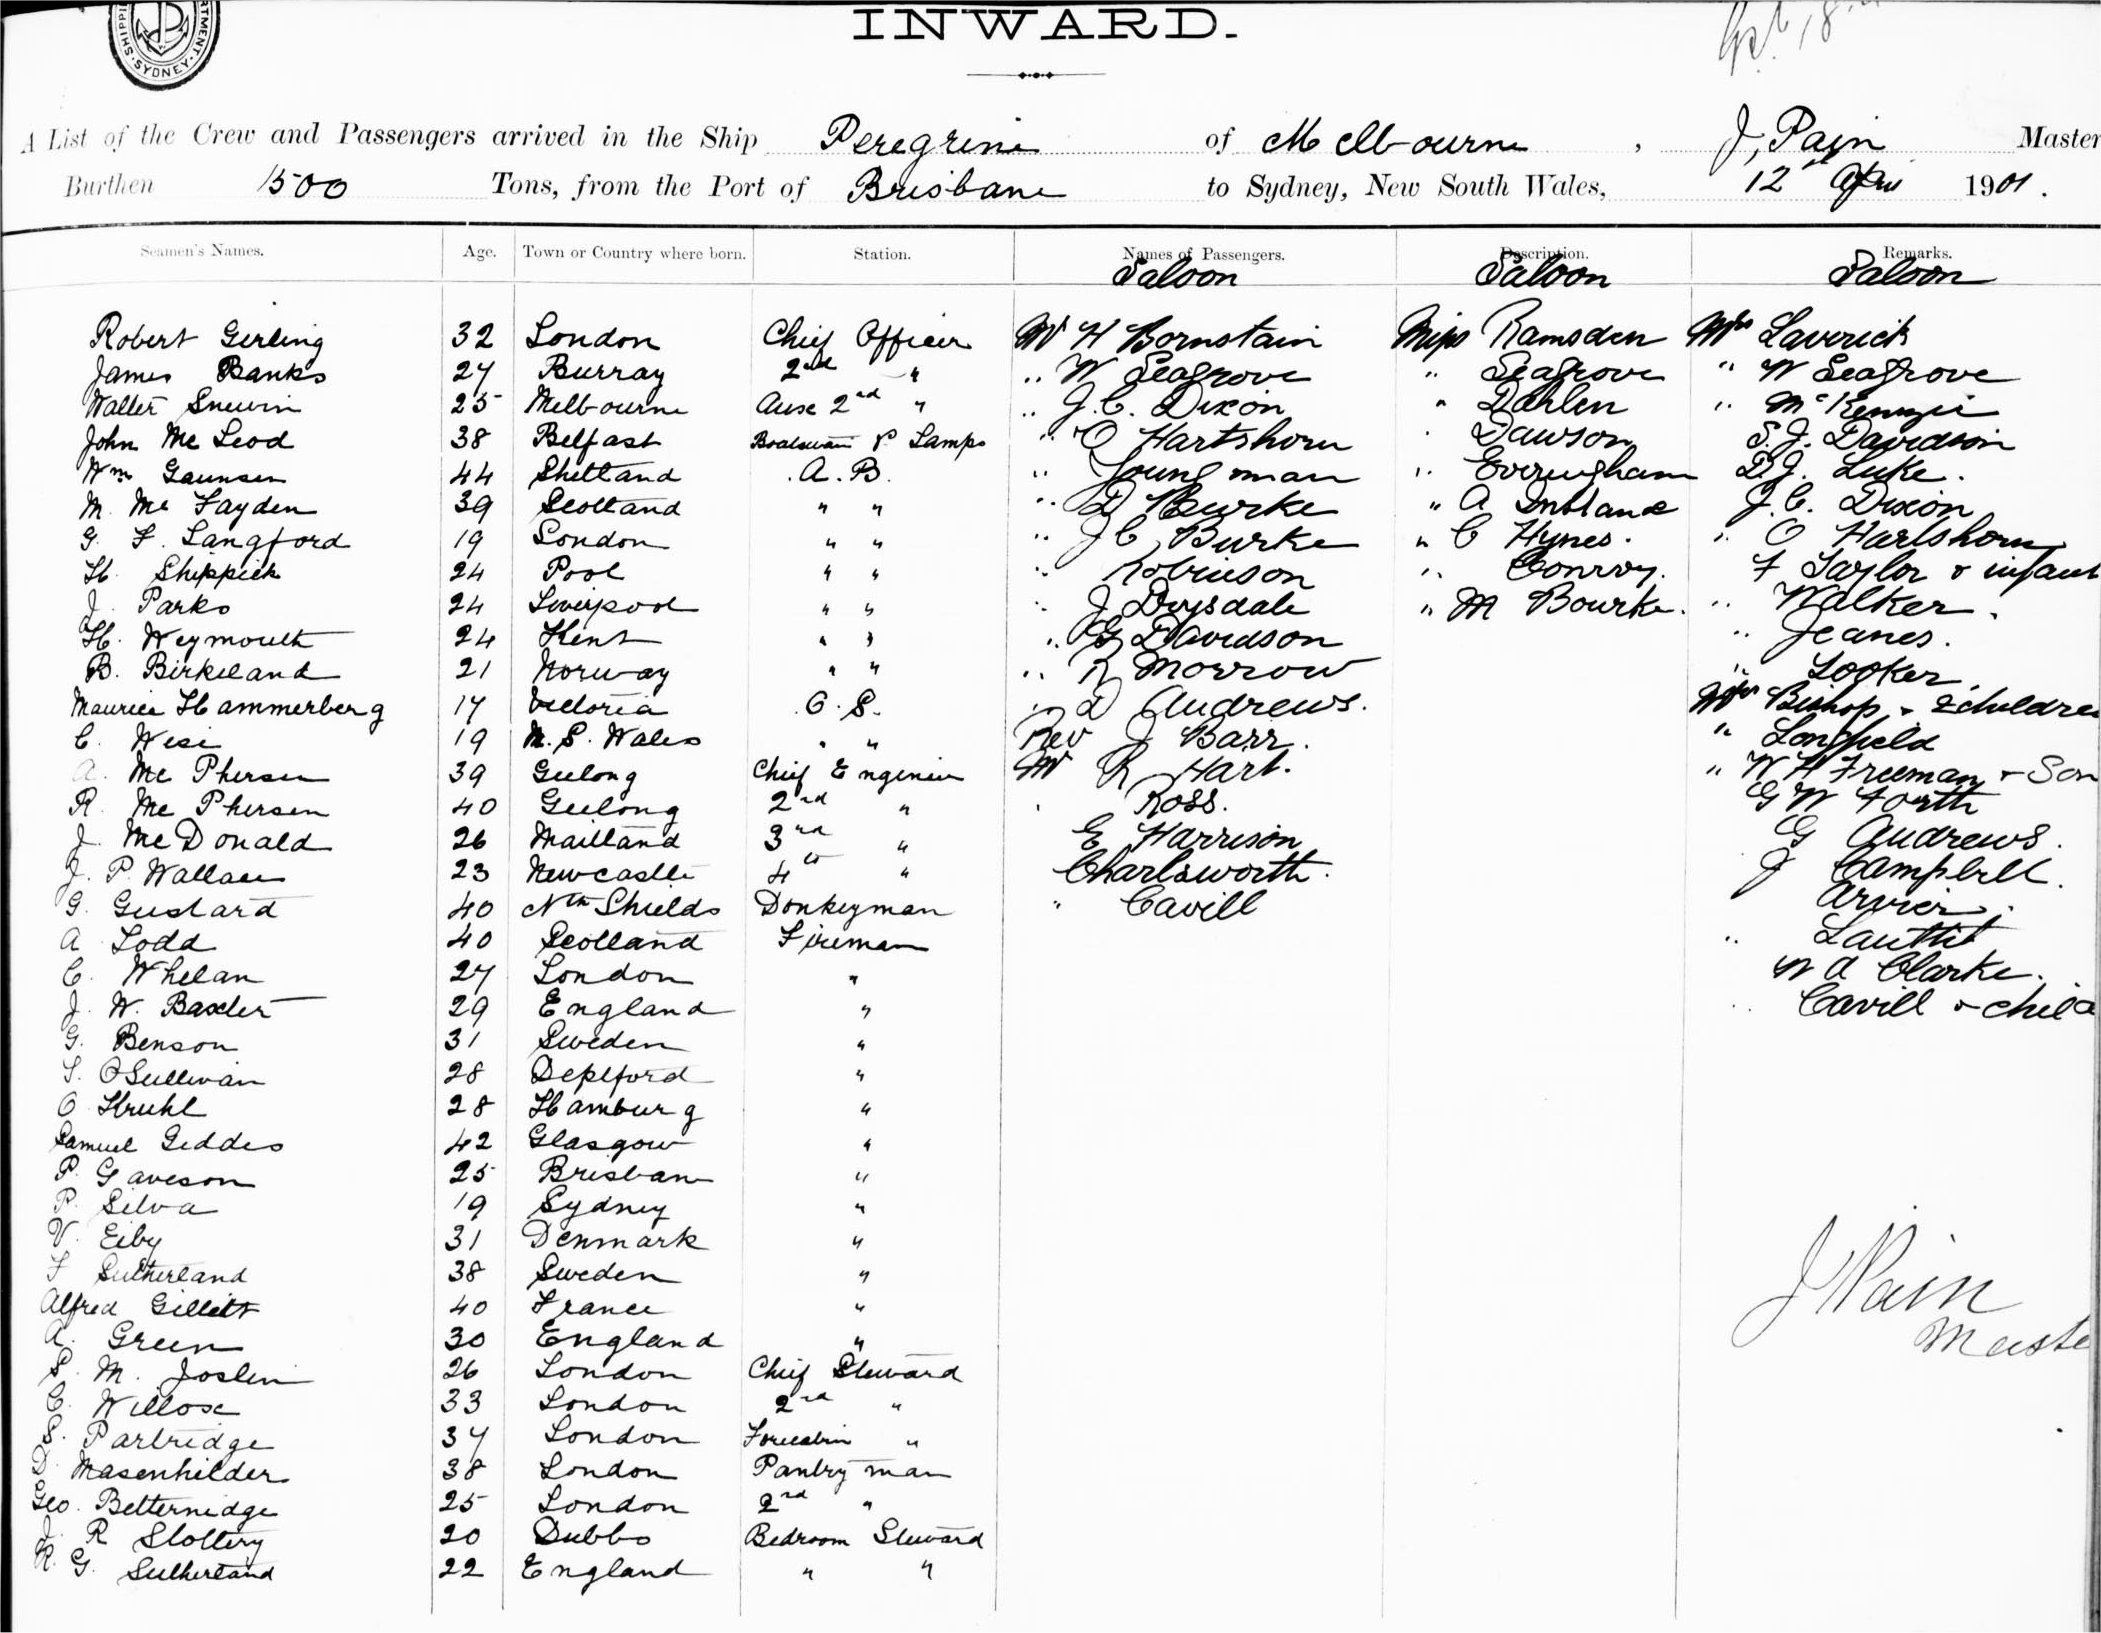 SHIPPI RTMENT SYDNEY
INWARD.
A List of the Crew and Passengers arrived in the Ship Peregrine of Melbourne, J, Pain Master
Burthen 1500 Tons, from the Port of Brisbane to Sydney, New South Wales, 12th April 1901.
Seamen's Names. Age. Town or Country where born. Station. Names of Passengers. Description. Remarks.
Saloon Saloon Saloon
Robert Gerling 32 London Chief Officer Mr H Bornstain Miss Ramsden Mrs Laverick
James Banks 27 Burray 2nd " " W Seagrove " Seagrove " W Seagrove
Walter 25 Melbourne Aux 2nd " " J. C. Dixon " Dahlen " McKenzie
John Mc Leod 38 Belfast Boatswain & Lamps " O Hartshorn " Dawson S. J. Davidson
Wm Gaunsen 44 Shetland A. B. " Youngman " Everingham D. J. Luke.
M. Mc Fayden 39 Scotland " " " D Burke " A J. C. Dixon
G. F. Langford 19 London " " " J C Burke " C Hynes. " O Hartshorn
H. Shippick 24 Pool " " " Robinson " Conroy. F Taylor & infant
J. Parks 24 Liverpool " " " J Drysdale " M Bourke. " Walker.
H. Weymouth 24 Kent " " " G Davidson " Jeanes.
B. Birkeland 21 Norway " " " R Morrow " Looker
Maurice Hammerberg 17 Victoria O. S. " D Andrews. Mrs Bishop & 2 childre
C. West 19 N. S. Wales " " Rev J Barr. " Longfield
A. Mc Phersen 39 Geelong Chief Engenier Mr R Hart. " W H Freeman & Son
R. Mc Phersen 40 Geelong 2nd " " Ross. G W Forth
J. McDonald 26 Maitland 3rd " E Harrison G Andrews.
J. P. Wallace 23 Newcastle 4th " Charlsworth. J Campbell.
G. Gustard 40 Nth Shields Donkeyman " Cavill
A Todd 40 Scotland Fireman " Lauttit
C. Whelan 27 London " W A Clarke.
J. W. Baxter 29 England " " Cavill & child
G. Benson 31 Sweden "
S. O'Sullivan 28 Deptford "
O Kruhl 28 Hamburg "
Samuel Geddes 42 Glasgow "
P. Gaveson 25 Brisbane "
P. Silva 19 Sydney "
V. Eiby 31 Denmark "
F Sutherland 38 Sweden "
Alfred Gillett 40 France "
A. Green 30 England "
J Pain
Maste
S. M. Joslin 26 London Chief Steward
C. Willox 33 London 2nd "
S. Partridge 37 London Forecabin "
D. Masenhelder 38 London Pantry man
Geo. Betteridge 25 London 2nd "
J. R Slottery 20 Dubbo Bedroom Steward
R. G. Sutherland 22 England " "